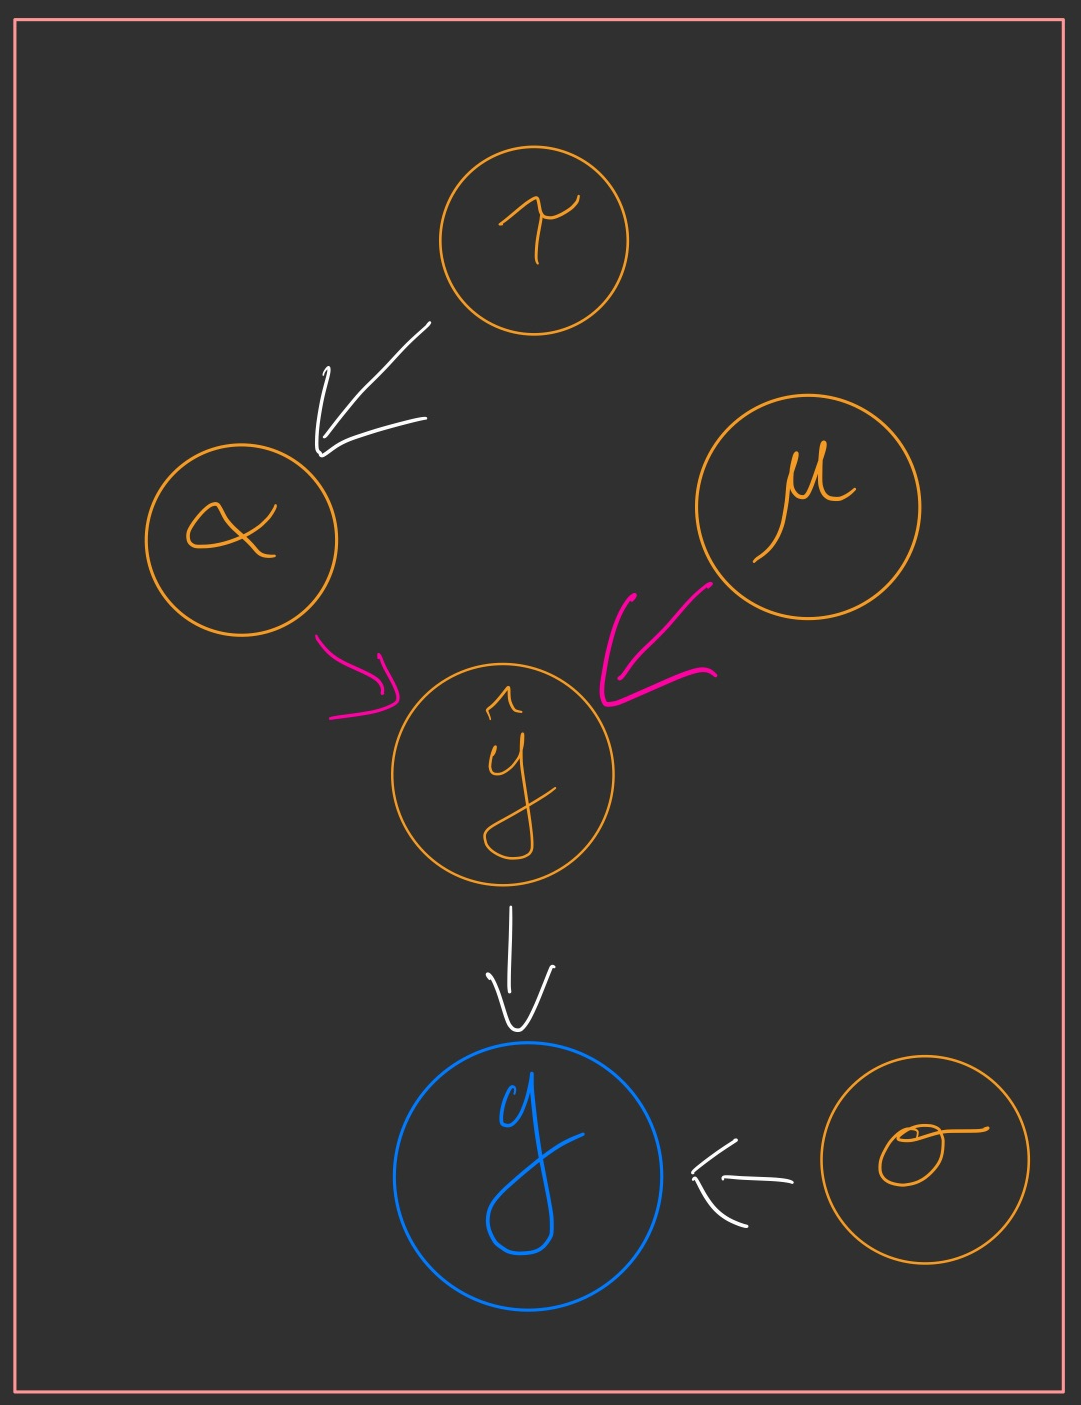 τ
α
μ
ŷ
y
σ